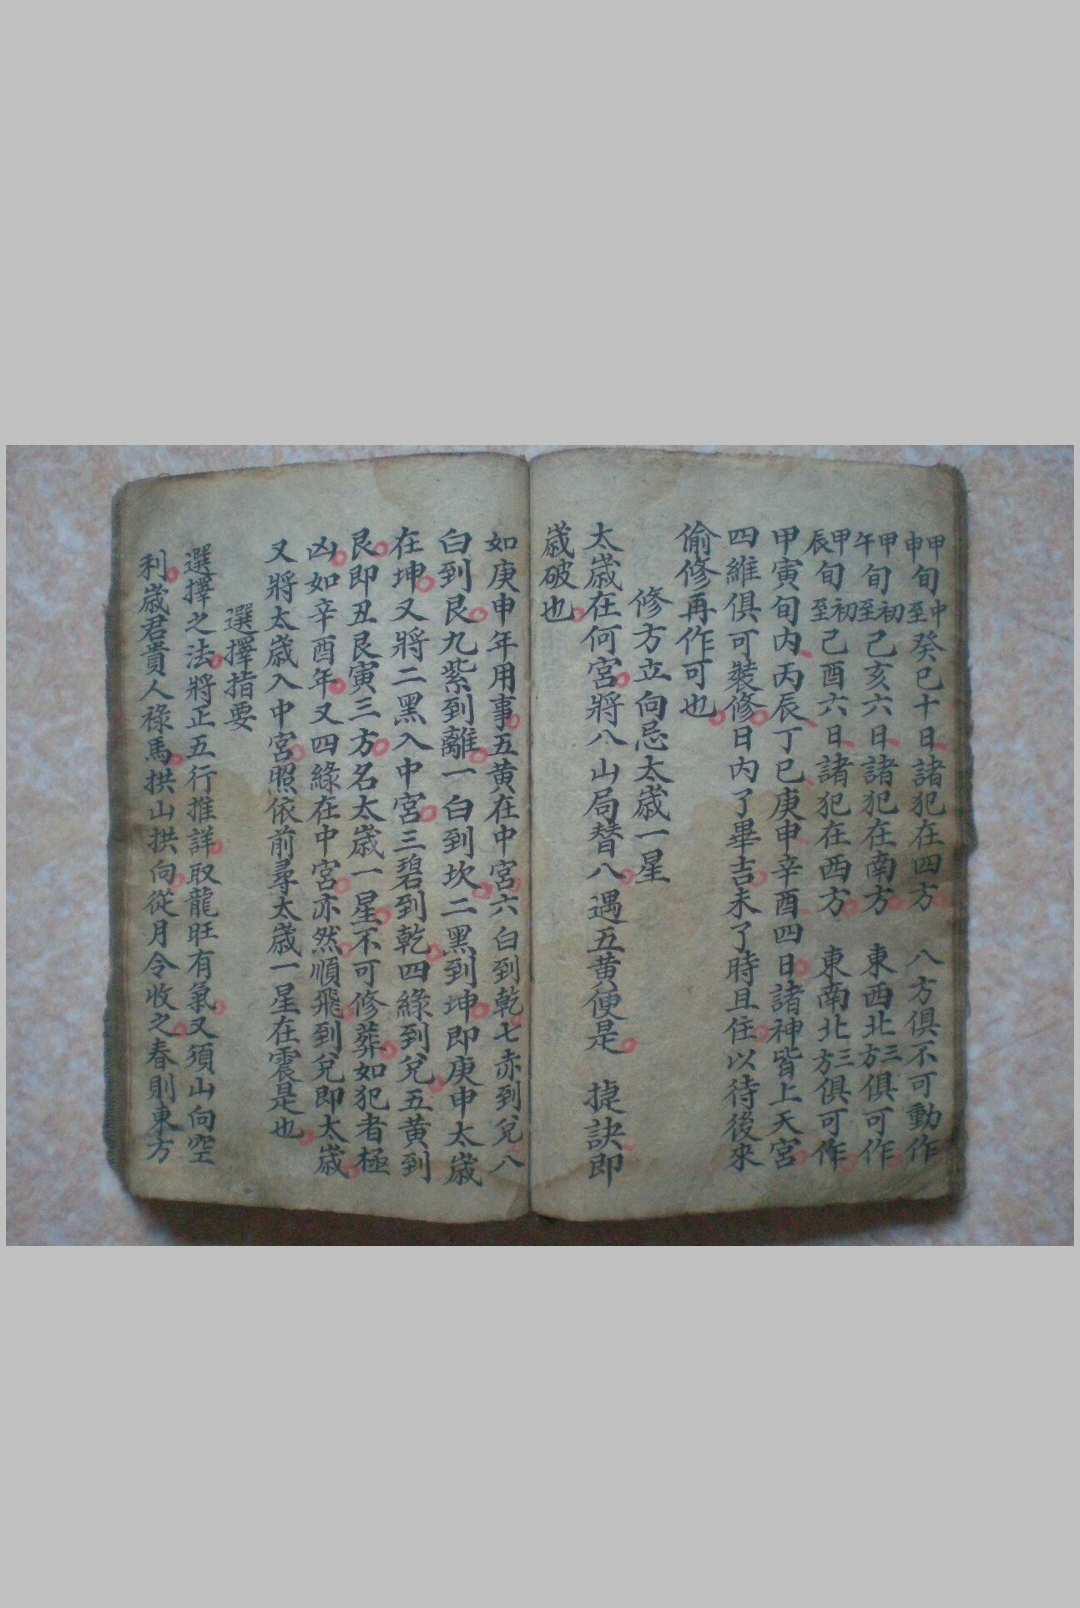 甲申旬中至癸巳十日諸犯在四方　八方俱不可動作
甲午旬初至己亥六日諸犯在南方　東西北三方俱可作
甲辰旬初至己酉六日諸犯在西方　東南北三方俱可作
甲寅旬内丙辰丁巳庚申辛酉四日諸神皆上天宮
四維俱可裝修日内了畢吉未了時且住以待後來
偷修再作可也
修方立向忌太歲一星
太歲在何宮將八山局替八遇五黄便是　㨗訣即
歲破也
如庚申年用事五黄在中宮六白到乾七赤到兌八
白到艮九紫到離一白到坎二黑到坤即庚申太歲
在坤又將二黑入中宮三碧到乾四綠到兌五黄到
艮即丑艮寅三方名太歲一星不可修葬如犯者極
凶如辛酉年又四綠在中宮亦然順飛到兌即太歲
又將太歲入中宮照依前尋太歲一星在震是也
選擇指要
選擇之法將正五行推詳取龍旺有氣又須山向空
利歲君貴人祿馬拱山拱向從月令收之春則東方